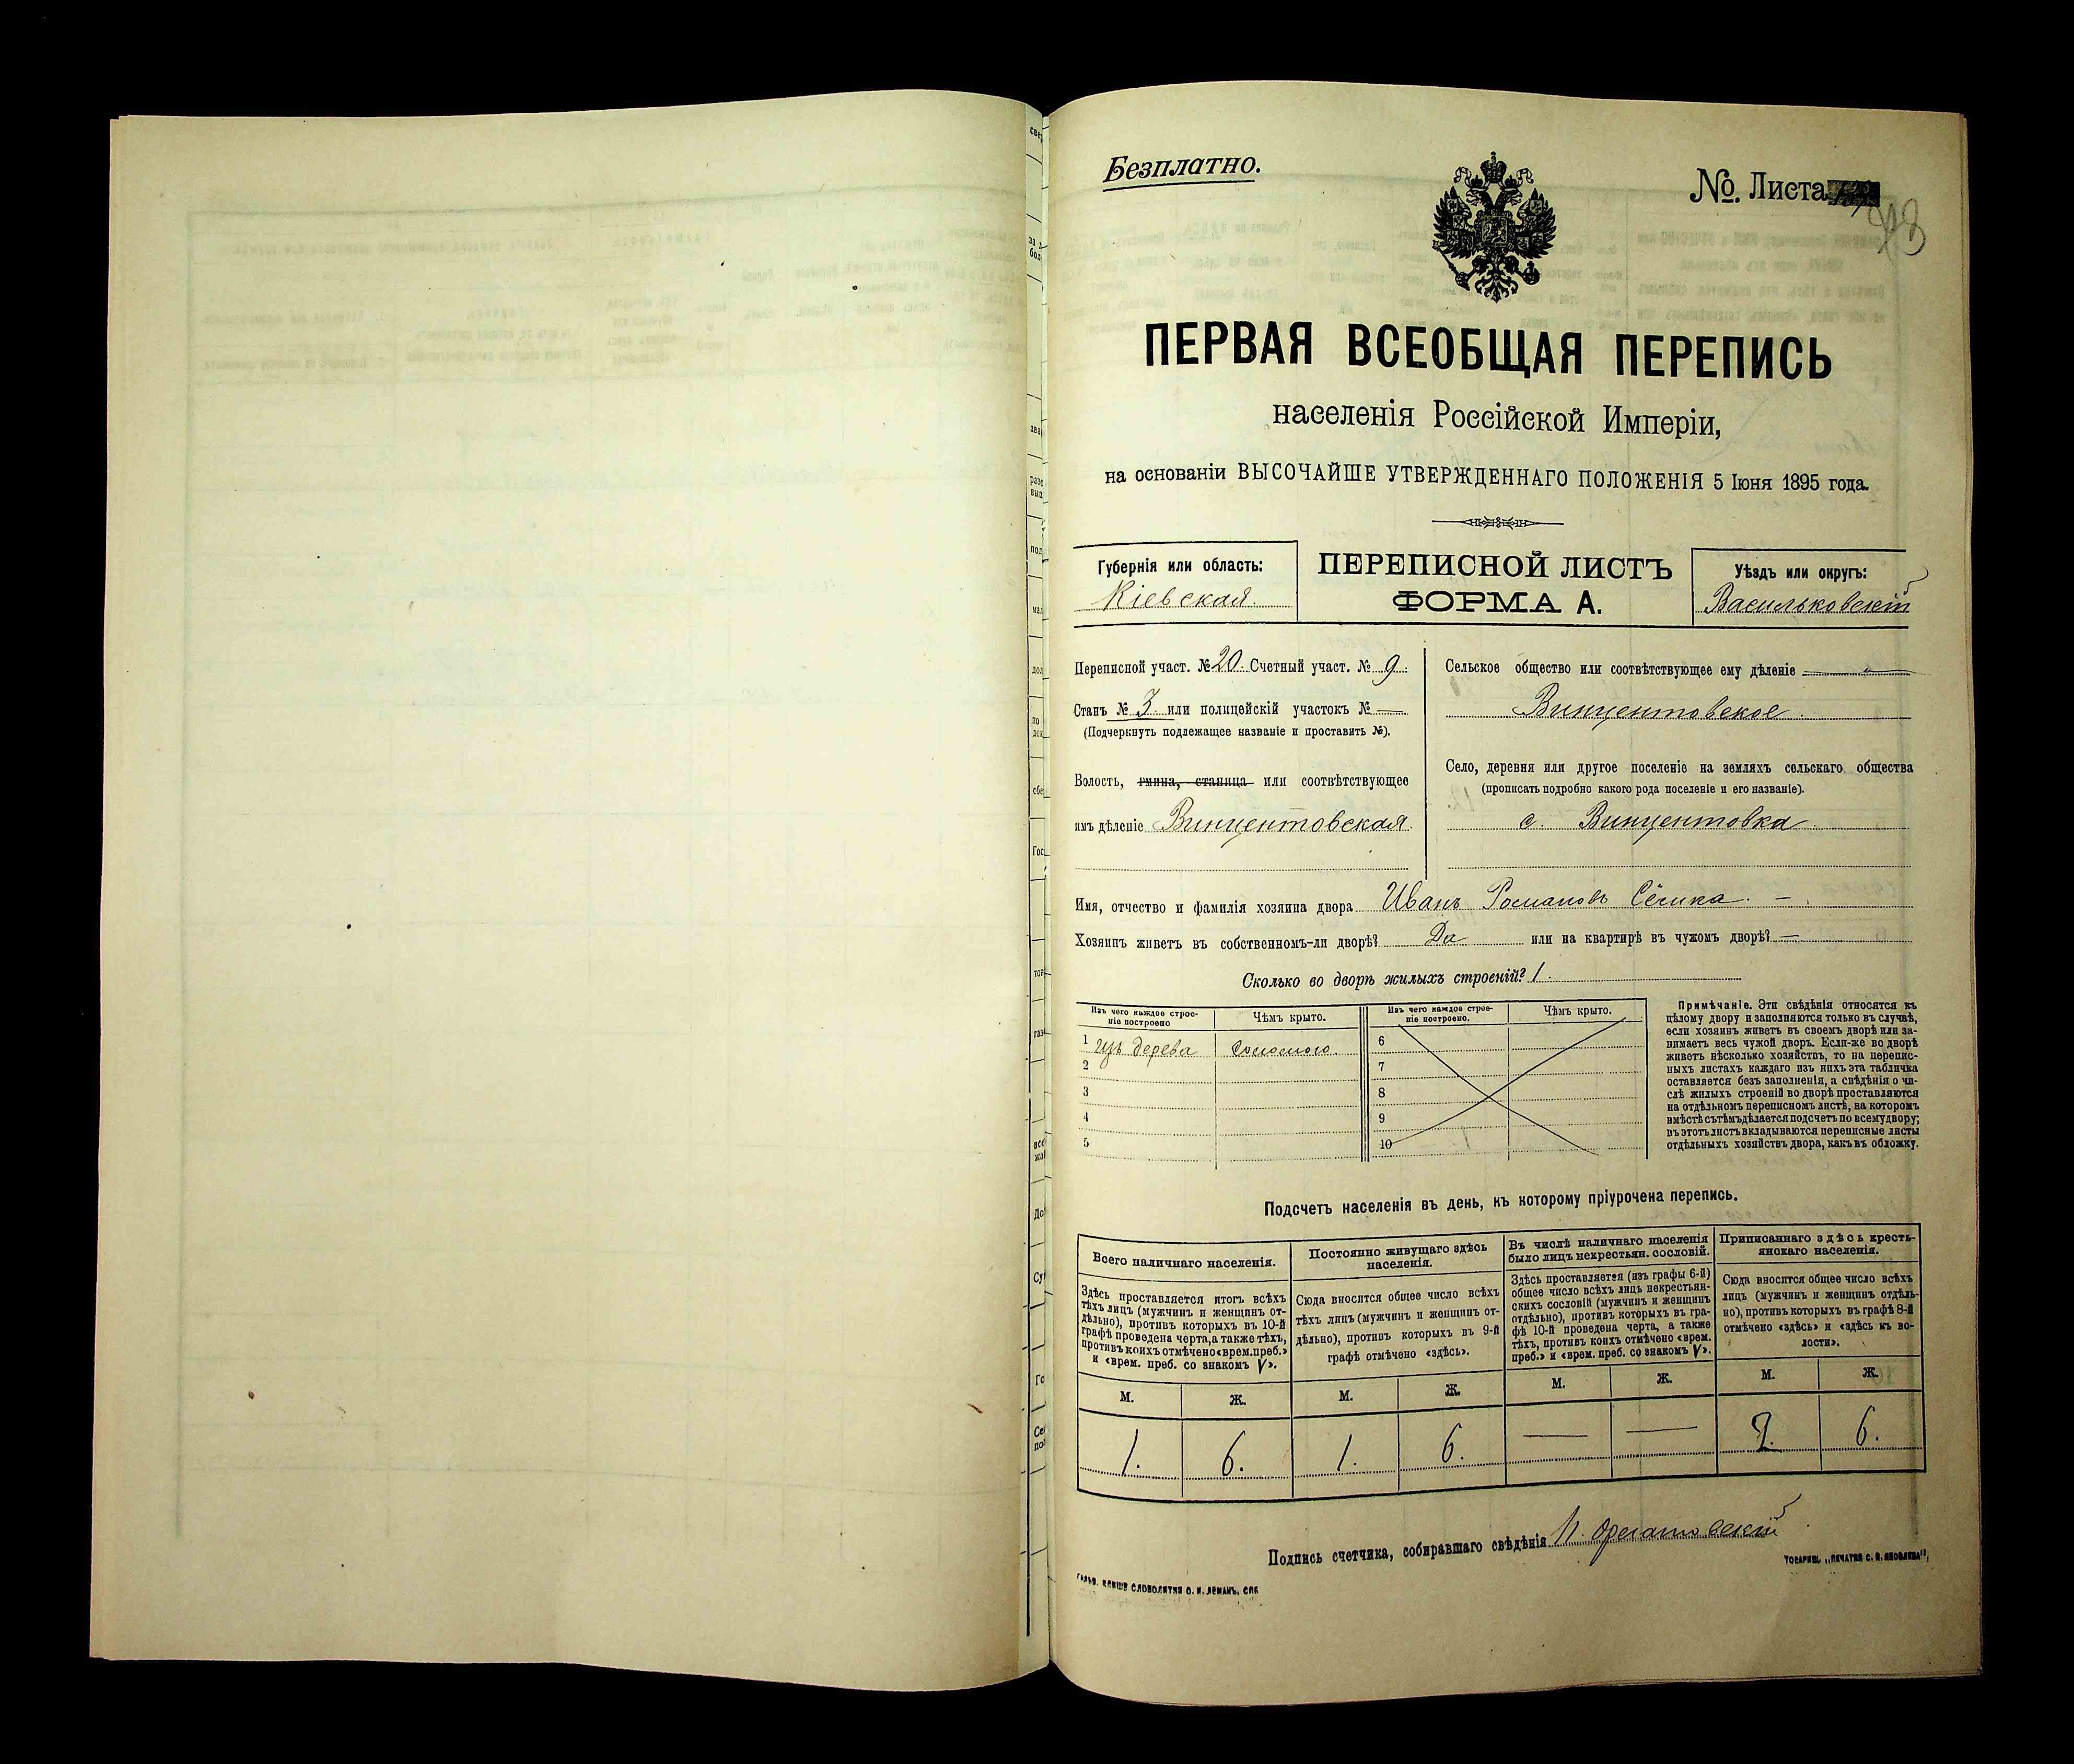 Безплатно.
№. Листа
ПЕРВАЯ ВСЕОБЩАЯ ПЕРЕПИСЬ
населенія Россійской Имперіи,
на основаніи ВЫСОЧАЙШЕ УТВЕРЖДЕННАГО ПОЛОЖЕНІЯ 5 Іюня 1895 года.
Губернія или область:
Кіевская.
ПЕРЕПИСНОЙ ЛИСТЪ
ФОРМА А.
Уѣздъ или округъ:
Васильковскій
Переписной участ. № 20. Счетный участ. № 9.
Станъ № 3. или полицейскій участокъ № —
(Подчеркнуть подлежащее названіе и проставить №).
Волость, гмина, станица или соотвѣтствующее
имъ дѣленіе Винцентовская.
Сельское общество или соотвѣтствующее ему дѣленіе
Винцентовское.
Село, деревня или другое поселеніе на земляхъ сельскаго общества
(прописать подробно какого рода поселеніе и его названіе).
с. Винцентовка.
Имя, отчество и фамилія хозяина двора Иванъ Романовъ —
Хозяинъ живетъ въ собственномъ-ли дворѣ? Да или на квартирѣ въ чужомъ дворѣ? —
Сколько во дворѣ жилыхъ строеній? 1.
Изъ чего каждое строе-
ніе построено
Чѣмъ крыто.
1 изъ дерева Соломою.
2
3
4
5
Изъ чего каждое строе-
ніе построено.
Чѣмъ крыто.
6
7
8
9
10
Примѣчаніе. Эти свѣдѣнія относятся къ
цѣлому двору и заполняются только въ случаѣ,
если хозяинъ живетъ въ своемъ дворѣ или за-
нимаетъ весь чужой дворъ. Если-же во дворѣ
живетъ нѣсколько хозяйствъ, то на перепис-
ныхъ листахъ каждаго изъ нихъ эта табличка
оставляется безъ заполненія, а свѣдѣнія о чи-
слѣ жилыхъ строеній во дворѣ проставляются
на отдѣльномъ переписномъ листѣ, на которомъ
вмѣстѣ съ тѣмъ дѣлается подсчетъ по всему двору;
въ этотъ листъ вкладываются переписные листы
отдѣльныхъ хозяйствъ двора, какъ въ обложку.
Подсчетъ населенія въ день, къ которому пріурочена перепись.
Всего наличнаго населенія.
Здѣсь проставляется итогъ всѣхъ
тѣхъ лицъ (мужчинъ и женщинъ от-
дѣльно), противъ которыхъ въ 10-й
графѣ проведена черта, а также тѣхъ,
противъ коихъ отмѣчено «врем. преб.»
и «врем. преб. со знакомъ V».
М. Ж.
1. 6.
Постоянно живущаго здѣсь
населенія.
Сюда вносится общее число всѣхъ
тѣхъ лицъ (мужчинъ и женщинъ от-
дѣльно), противъ которыхъ въ 9-й
графѣ отмѣчено «здѣсь».
М. Ж.
1. 6.
Въ числѣ наличнаго населенія
было лицъ некрестьян. сословій.
Здѣсь проставляется (изъ графы 6-й)
общее число всѣхъ лицъ некрестьян-
скихъ сословій (мужчинъ и женщинъ
отдѣльно), противъ которыхъ въ гра-
фѣ 10-й проведена черта, а также
тѣхъ, противъ коихъ отмѣчено «врем.
преб.» и «врем. преб. со знакомъ V».
М. Ж.
— —
Приписаннаго здѣсь кресть-
янскаго населенія.
Сюда вносится общее число всѣхъ
лицъ (мужчинъ и женщинъ отдѣль-
но), противъ которыхъ въ графѣ 8-й
отмѣчено «здѣсь» и «здѣсь къ во-
лости».
М. Ж.
2. 6.
Подпись счетчика, собиравшаго свѣдѣнія
КЛИШЕ СЛОВОЛИТНЯ О. И. ЛЕМАНЪ, СПБ
ТОВАРИЩ. „ПЕЧАТНЯ С. П. ЯКОВЛЕВА".